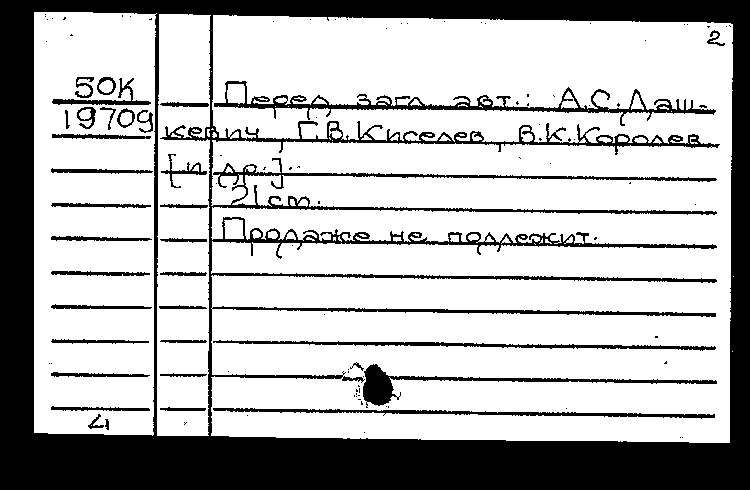 2
50К
19709
Перед загл. авт.: А.С.Даш-
кевич, Г.В.Киселев, В.К.Королев
[и др.].
21 cm.
Продаже не подлежит.